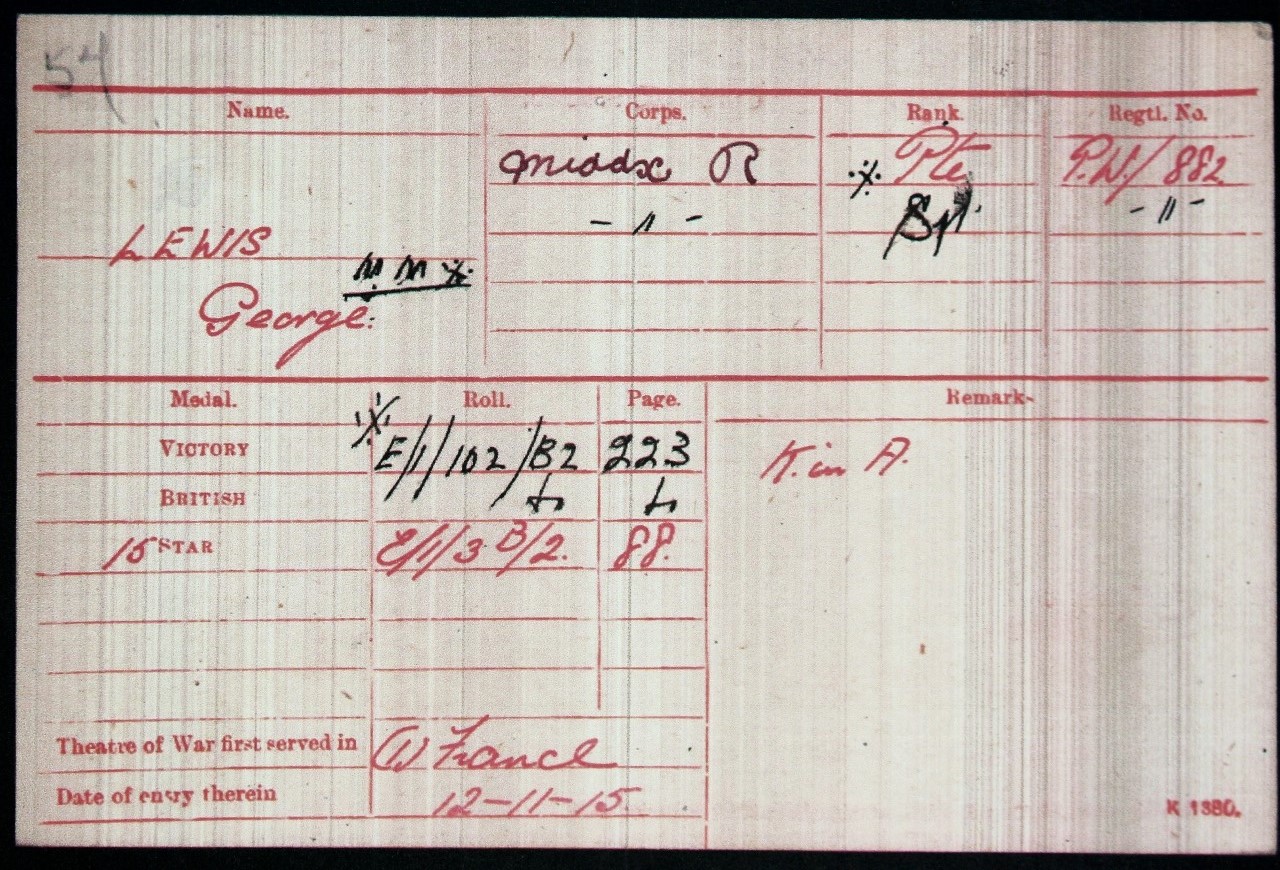 54
Name. Corps. Rank. Regtl. No.
Middx R ※ Pte P.W./882
-〃- Sjt. -〃-
LEWIS
M.M ※
George.
Medal. Roll. Page. Remark
VICTORY ※ E/1/102/B2 223 K. in A.
BRITISH
15 STAR E/1/3 B/2. 88.
Theatre of War first served in (1) France
Date of entry therein 12-11-15
K 1380.